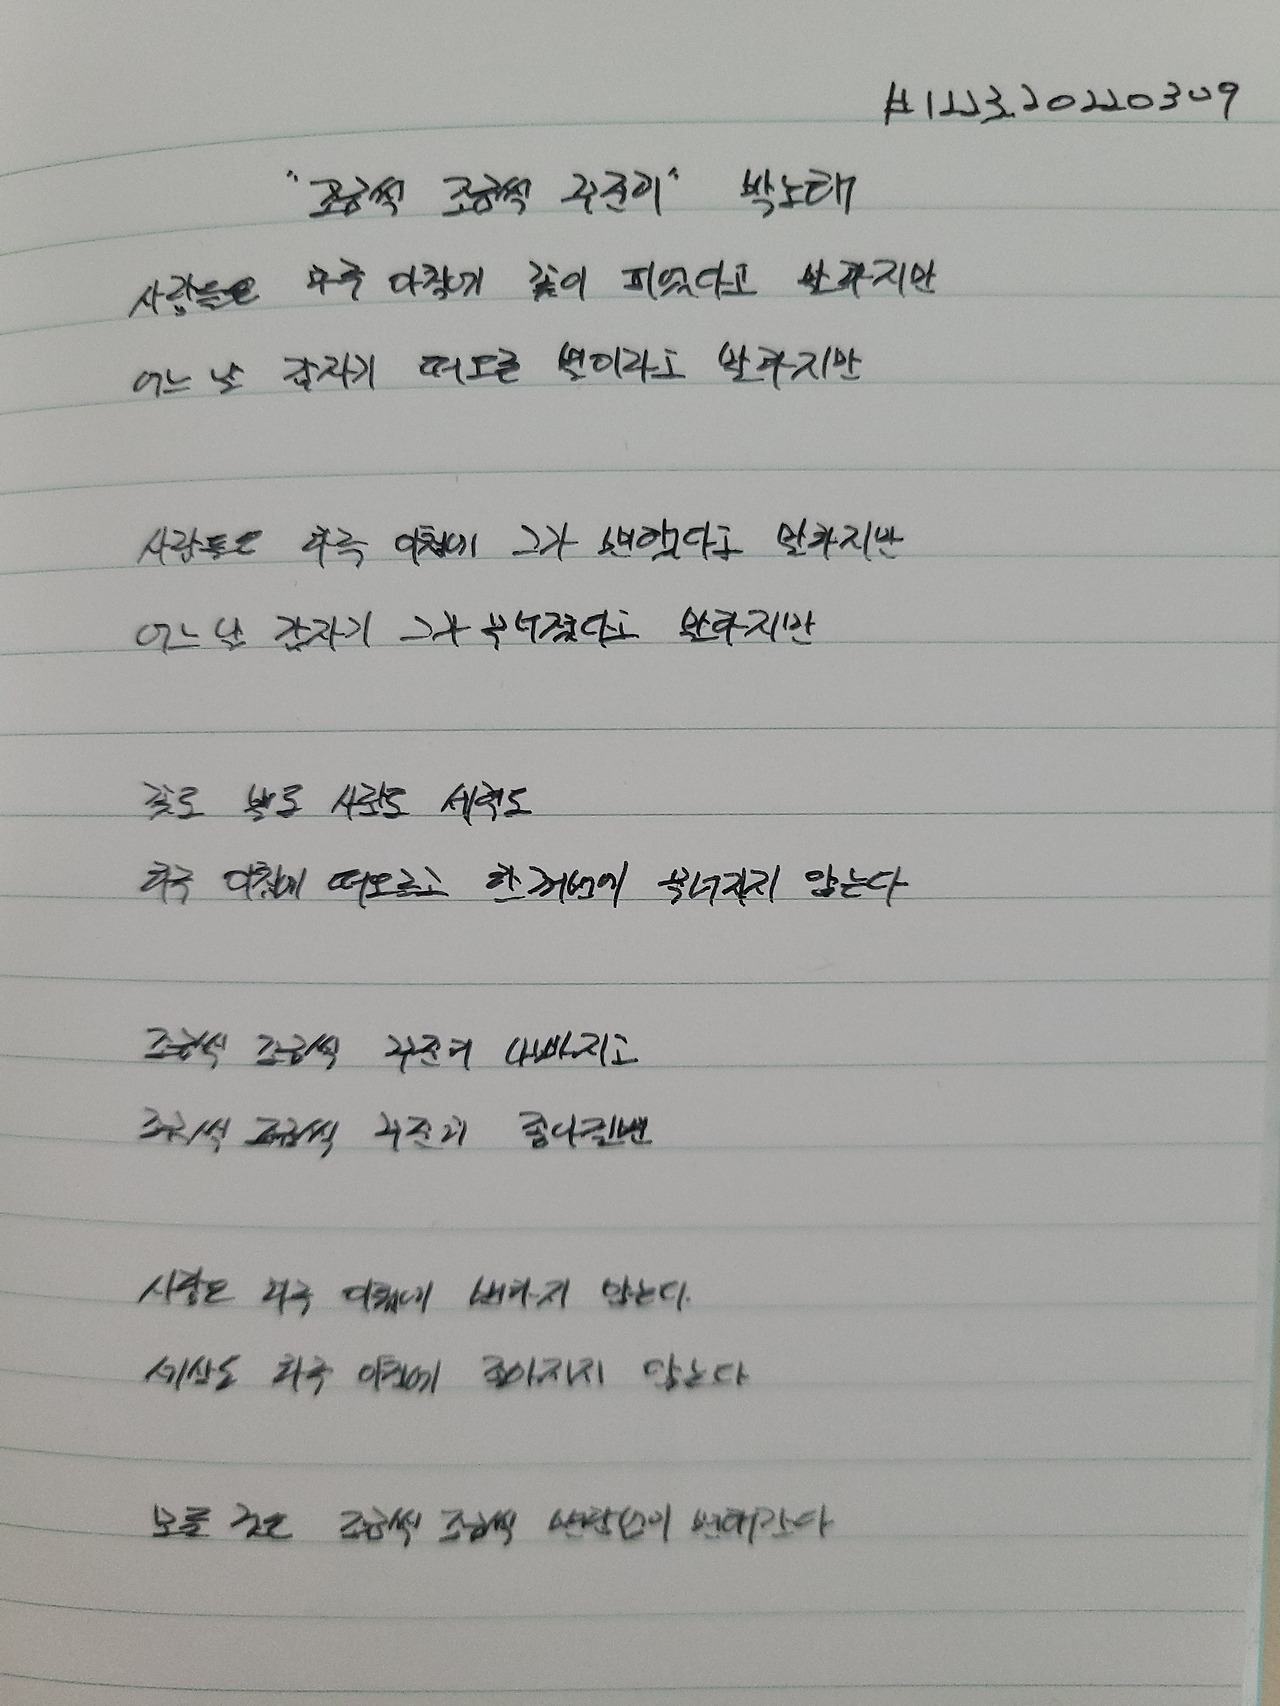 #1223. 20220309
"조금씩 조금씩 꾸준히" 박노해
사람들은 하루 아침에 꽃이 피었다고 말하지만
어느 날 갑자기 떠오른 별이라고 말하지만
사람들은 하루 아침에 그가 변했다고 말하지만
어느 날 갑자기 그가 무너졌다고 말하지만
꽃도 별도 사람도 세력도
하루 아침에 떠오르고 한꺼번에 무너지지 않는다
조금씩 조금씩 꾸준히 나빠지고
조금씩 조금씩 꾸준히 좋아질뿐
사람은 하루 아침에 변하지 않는다.
세상도 하루 아침에 좋아지지 않는다
모든 것은 조금씩 조금씩 변함없이 변해간다